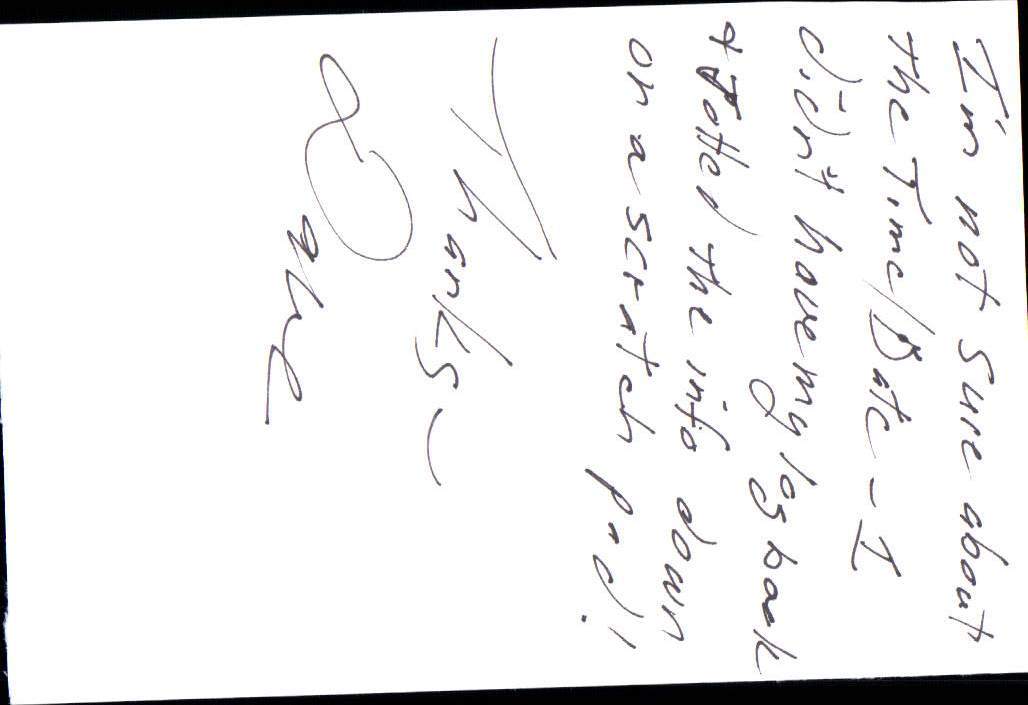 I'm not sure about
the Time/Date - I
didn't have my log book
+ Jotted the info down
on a scratch pad!
Thanks ~